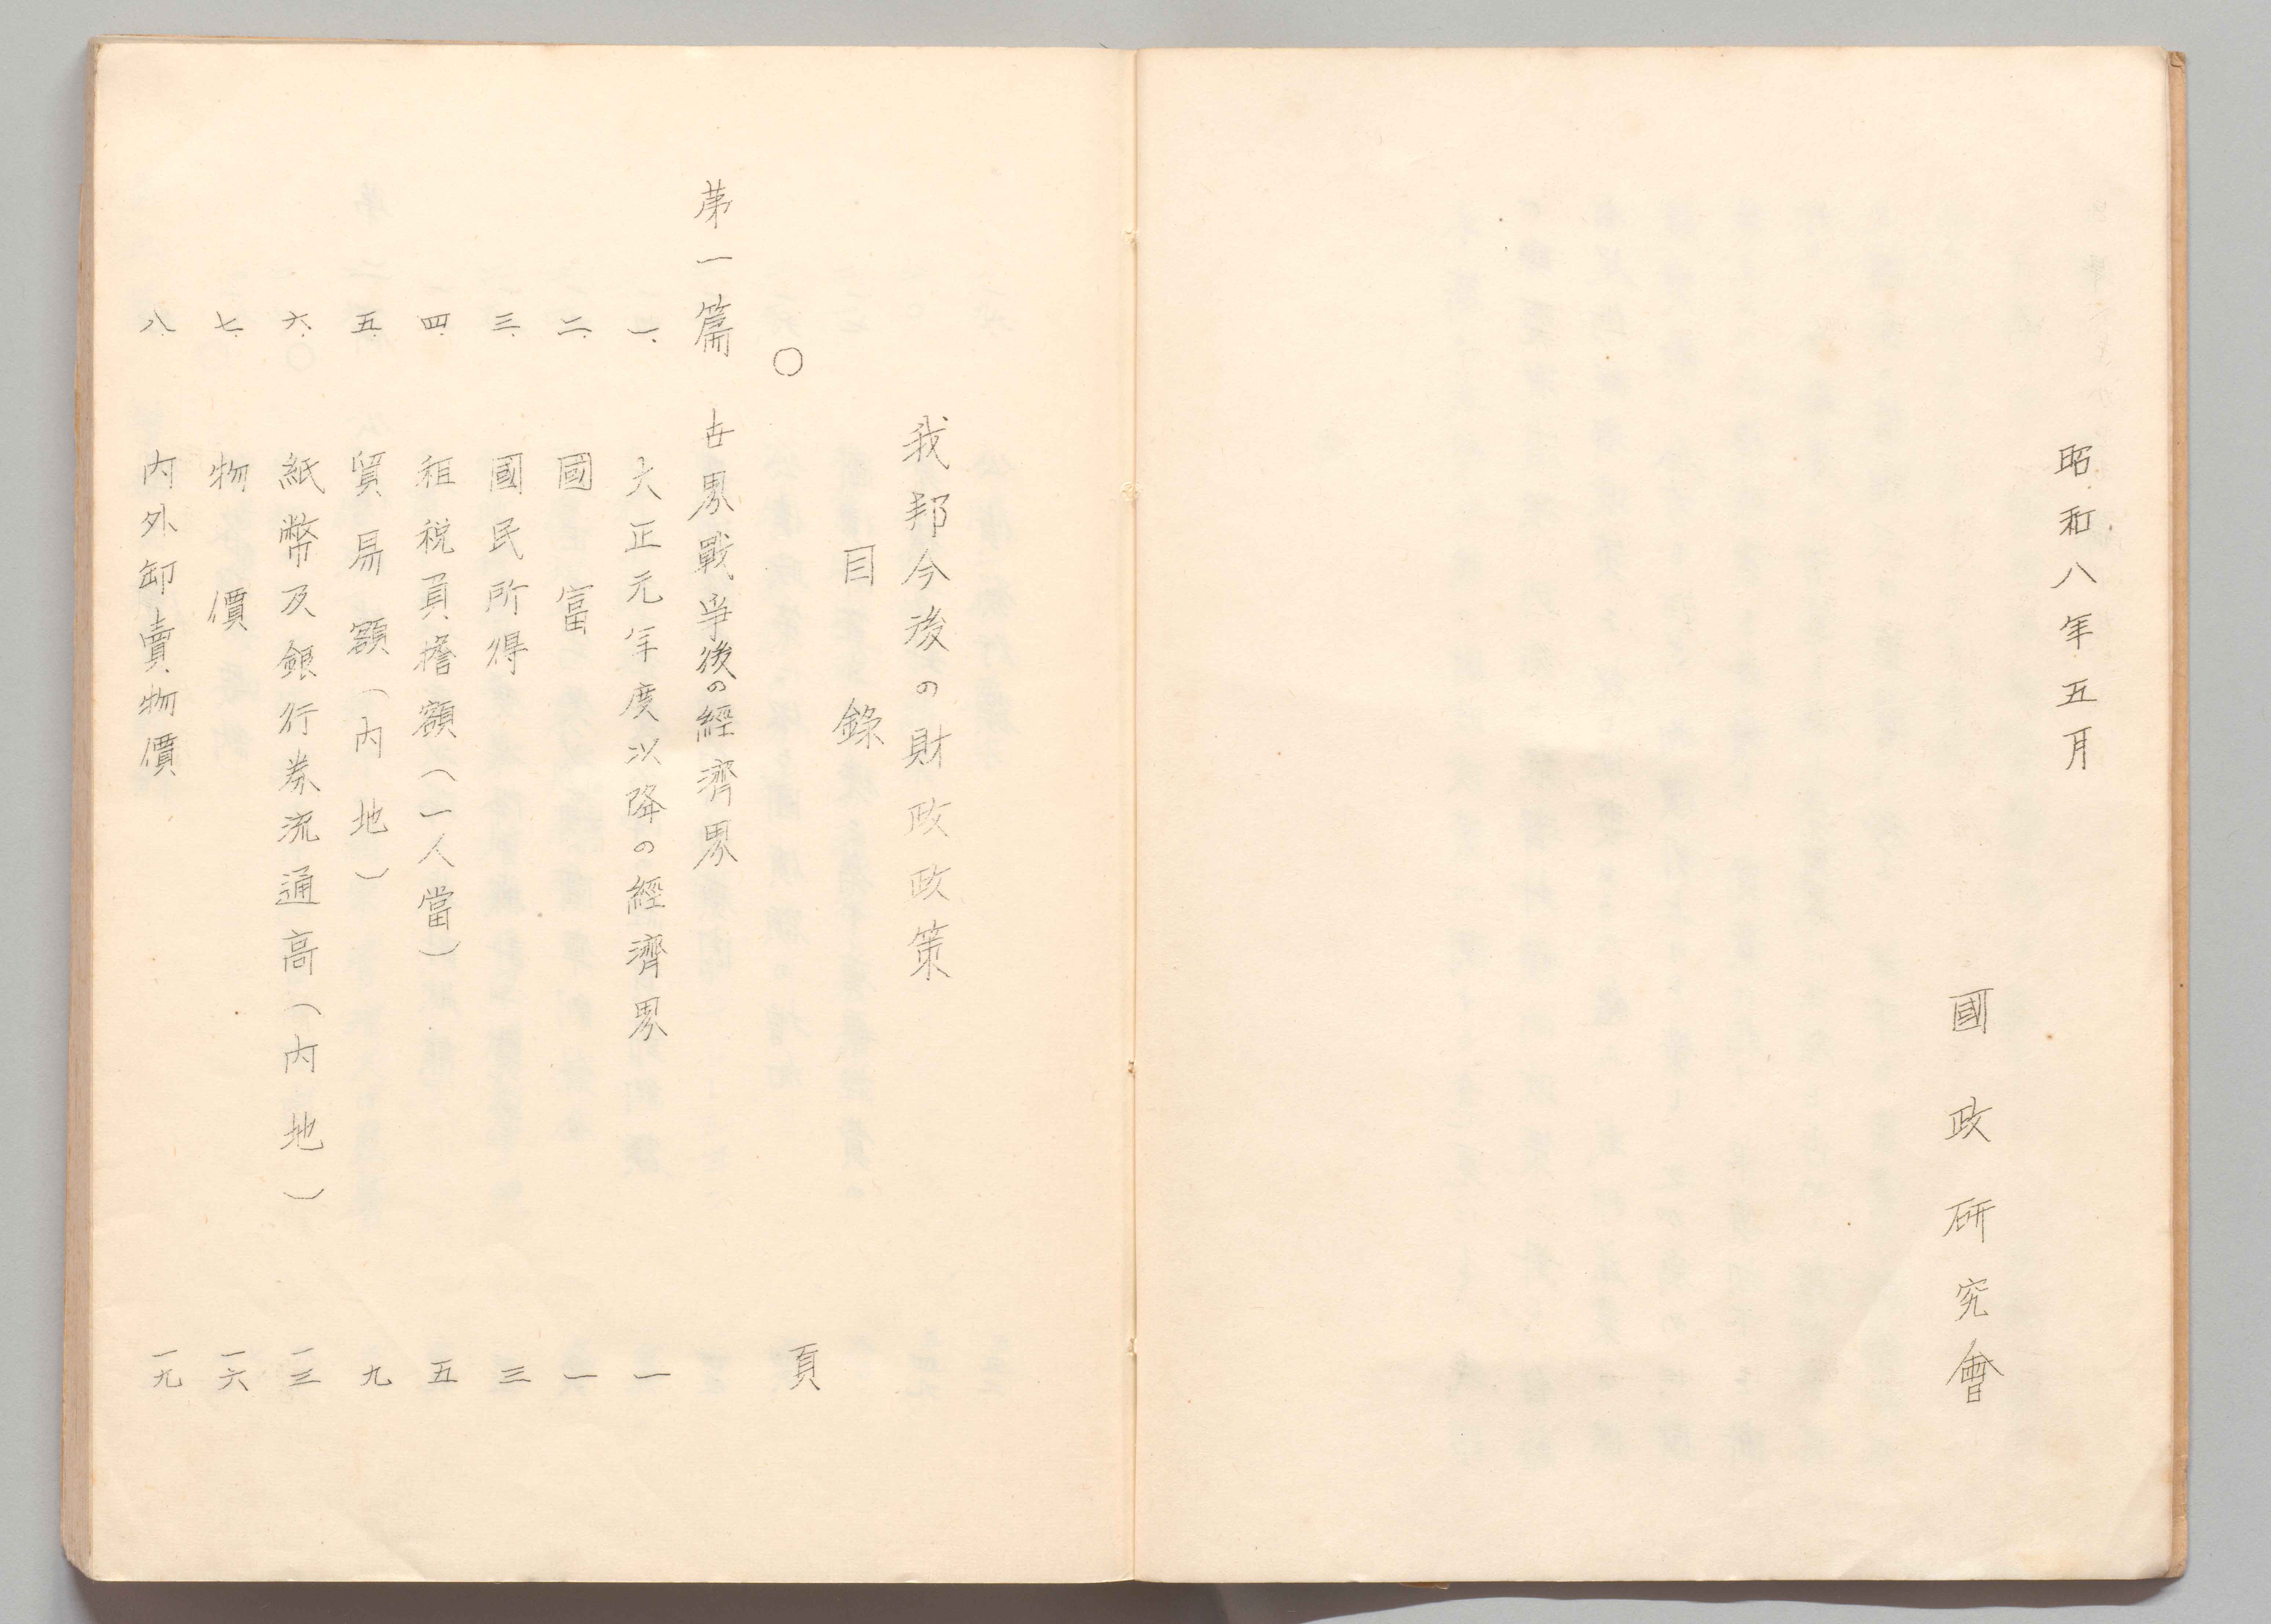 昭和八年五月
國政研究會
我邦今後の財政政策
目錄
○ 頁
第一篇 世界戰爭後の經濟界
一、大正元年度以降の經濟界 一
二、國富 一
三、國民所得 三
四、租税負擔額(一人當) 五
五、貿易額(內地) 九
六、紙幣及銀行券流通高(內地) 一三
七、物價 一六
八、內外卸賣物價 一九